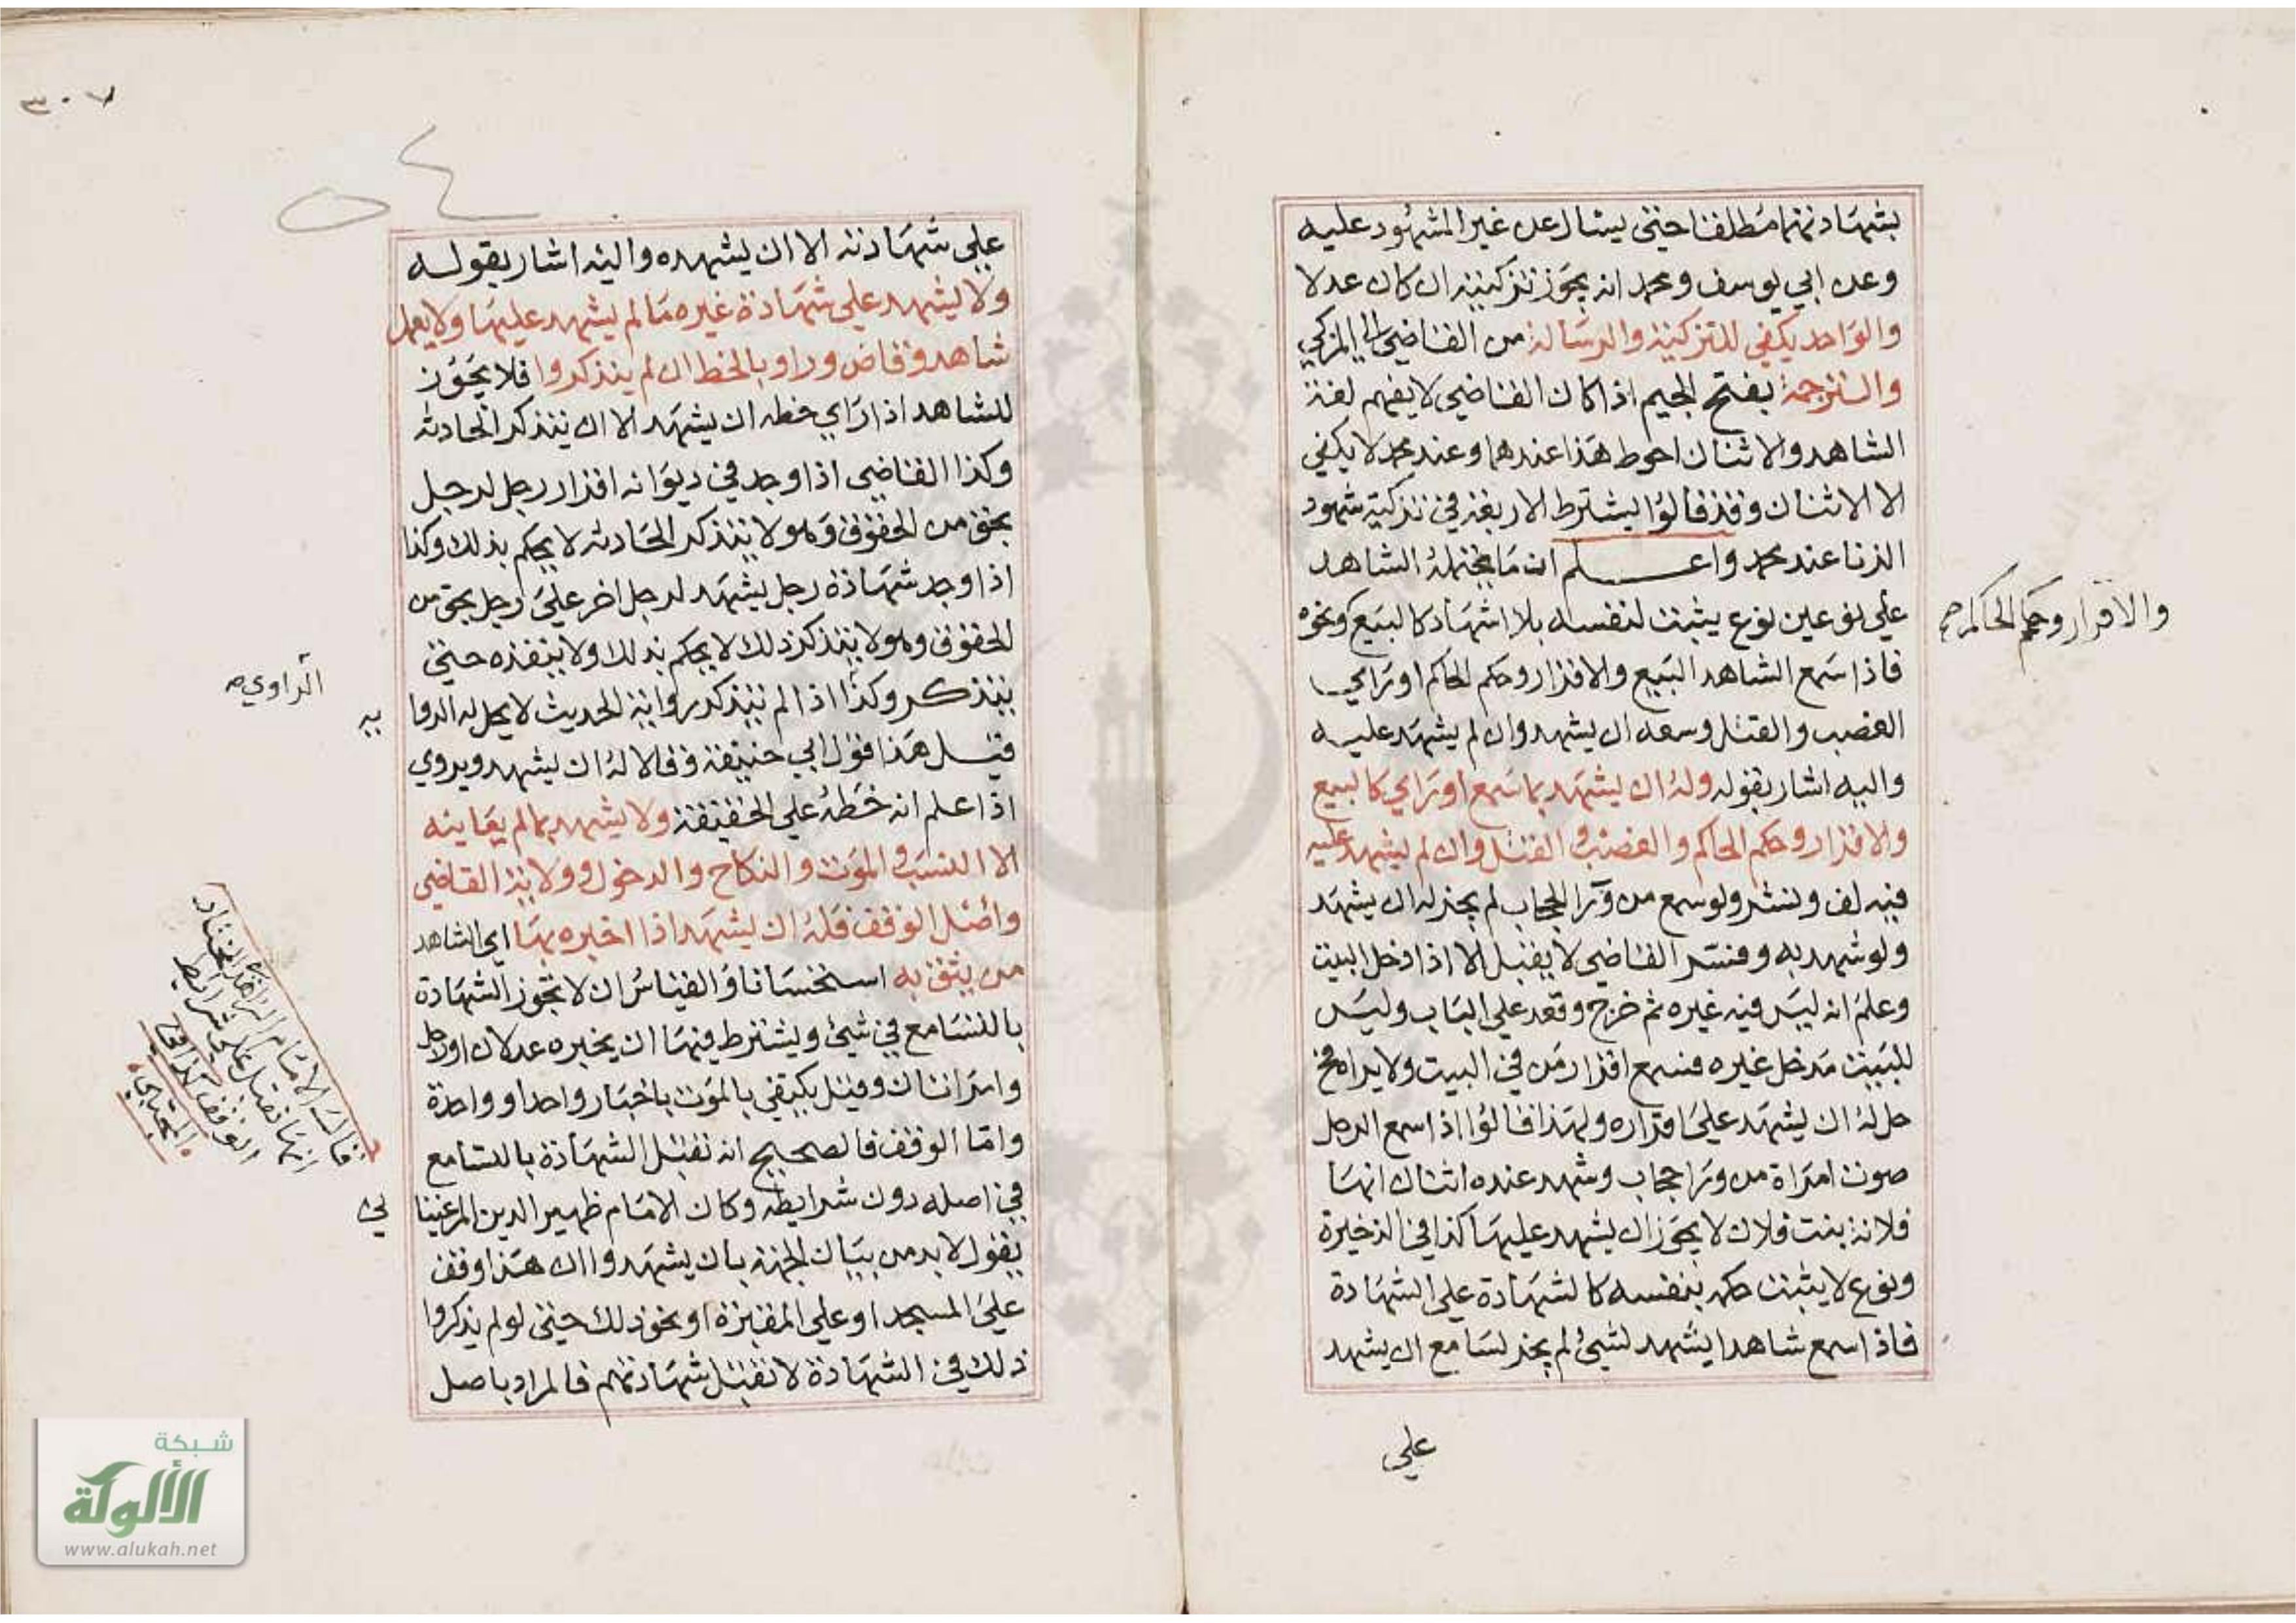 بشهادتهما مطلقا حتى يسال عن غير المشهود عليه
وعن ابي يوسف ومحمد انه يجوز تزكيته ان كان عدلا
والواحد يكفي للتزكية والرسالة من القاضي الي المزكي
والترجمة بفتح الجيم اذا كان القاضي لا يفهم لغة
الشاهد والاثنان احوط هذا عندهما وعند محمد لا يكفي
الا الاثنان وقد قالوا يشترط الاربعة في تزكية شهود
الزنا عند محمد واعلم ان ما يحتمله الشاهد
علي نوعين نوع يثبت لنفسه بلا اشهاد كالبيع ونحوه
والاقرار وحكم الحاكم صح
فاذا سمع الشاهد البيع والاقرار وحكم الحاكم او راي
الغصب والقتل وسعه ان يشهد وان لم يشهد عليه
واليه اشار بقوله وله ان يشهد بما سمع او راي كالبيع
والاقرار وحكم الحاكم والغصب والقتل وان لم يشهد عليه
فيه لف ونشر ولو سمع من ورا الحجاب لم يجز له ان يشهد
ولو شهد به وفسر القاضي لا يقبل الا اذا دخل البيت
وعلم انه ليس فيه غيره ثم خرج وقعد علي الباب وليس
للبيت مدخل غيره فسمع اقرار من في البيت ولا يراه فح
حل له ان يشهد علي اقراره ولهذا قالوا اذا سمع الرجل
صوت امراة من ورا حجاب وشهد عنده اثنان انها
فلانة بنت فلان لا يجوز ان يشهد عليها كذا في الذخيرة
ونوع لا يثبت حكمه بنفسه كالشهادة علي الشهادة
فاذا سمع شاهدا يشهد لشيئ لم يجز لسامع ان يشهد
علي
٣٠٧
علي شهادته الا ان يشهده واليه اشار بقوله
ولا يشهد علي شهادة غيره ما لم يشهد عليها ولا يعمل
شاهد وقاض وراو بالخط ان لم يتذكروا فلا يجوز
للشاهد اذا راي خطه ان يشهد الا ان يتذكر الحادثه
وكذا القاضي اذا وجد في ديوانه اقرار رجل لرجل
بحق من الحقوق وهو لا يتذكر الحادثه لا يحكم بذلك وكذا
اذا وجد شهادة رجل يشهد لرجل اخر علي رجل بحق من
الحقوق وهو لا يتذكر ذلك لا يحكم بذلك ولا ينفذه حتى
يتذكر وكذا اذا لم يتذكر رواية الحديث لا يحل له الروا
يه
الراوي صح
قيل هذا قول ابي حنيفة وقالا له ان يشهد ويروي
اذا علم انه خطه علي الحقيقة ولا يشهد بما لم يعاينه
الا النسب والموت والنكاح والدخول وولاية القاضي
واصل الوقف فله ان يشهد اذا اخبره بها اي الشاهد
من يثق به استحسانا والقياس ان لا تجوز الشهادة
بالتسامع في شيئ ويشترط فيها ان يخبره عدلان او رجل
وامراتان وقيل يكتفي بالموت باخبار واحد او واحدة
واما الوقف فالصحيح انه تقبل الشهادة بالتسامع
في اصله دون شرايطه وكان الامام ظهير الدين المرغينا
ني
يقول لا بد من بيان الجهة بان يشهدوا ان هذا وقف
علي المسجد او علي المقبرة او نحو ذلك حتى لو لم يذكروا
ذلك في الشهادة لا تقبل شهادتهم فالمراد باصل
قالت الامام الزاهد المختار
انها تقبل علي شرايط
الوقف كذا في
المجتبي
شبكة
الألوكة
www.alukah.net